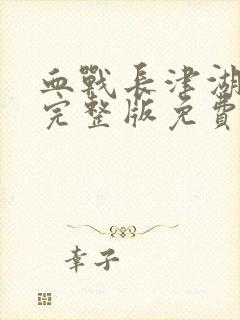 血戰長津湖
完整版免費
幸子